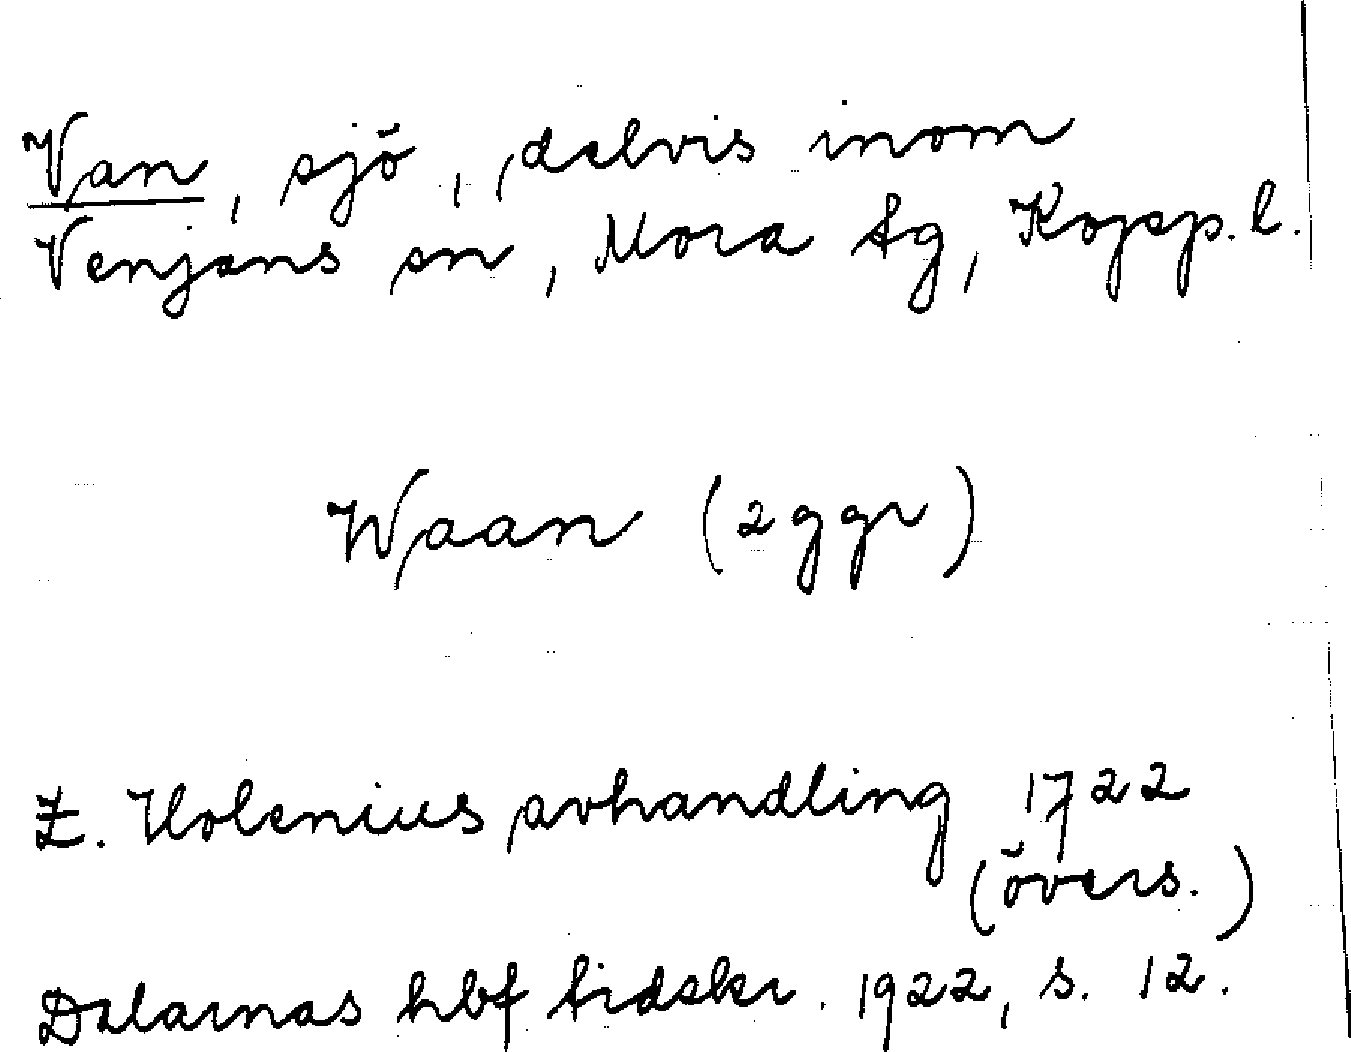 Van, sjö, delvis inom
Venjans sn, Mora tg, Kopp. l.
Waan (2 ggr)
Z. Holenius avhandling 1722
(övers.)
Dalarnas hbf tidskr. 1922, s. 12.